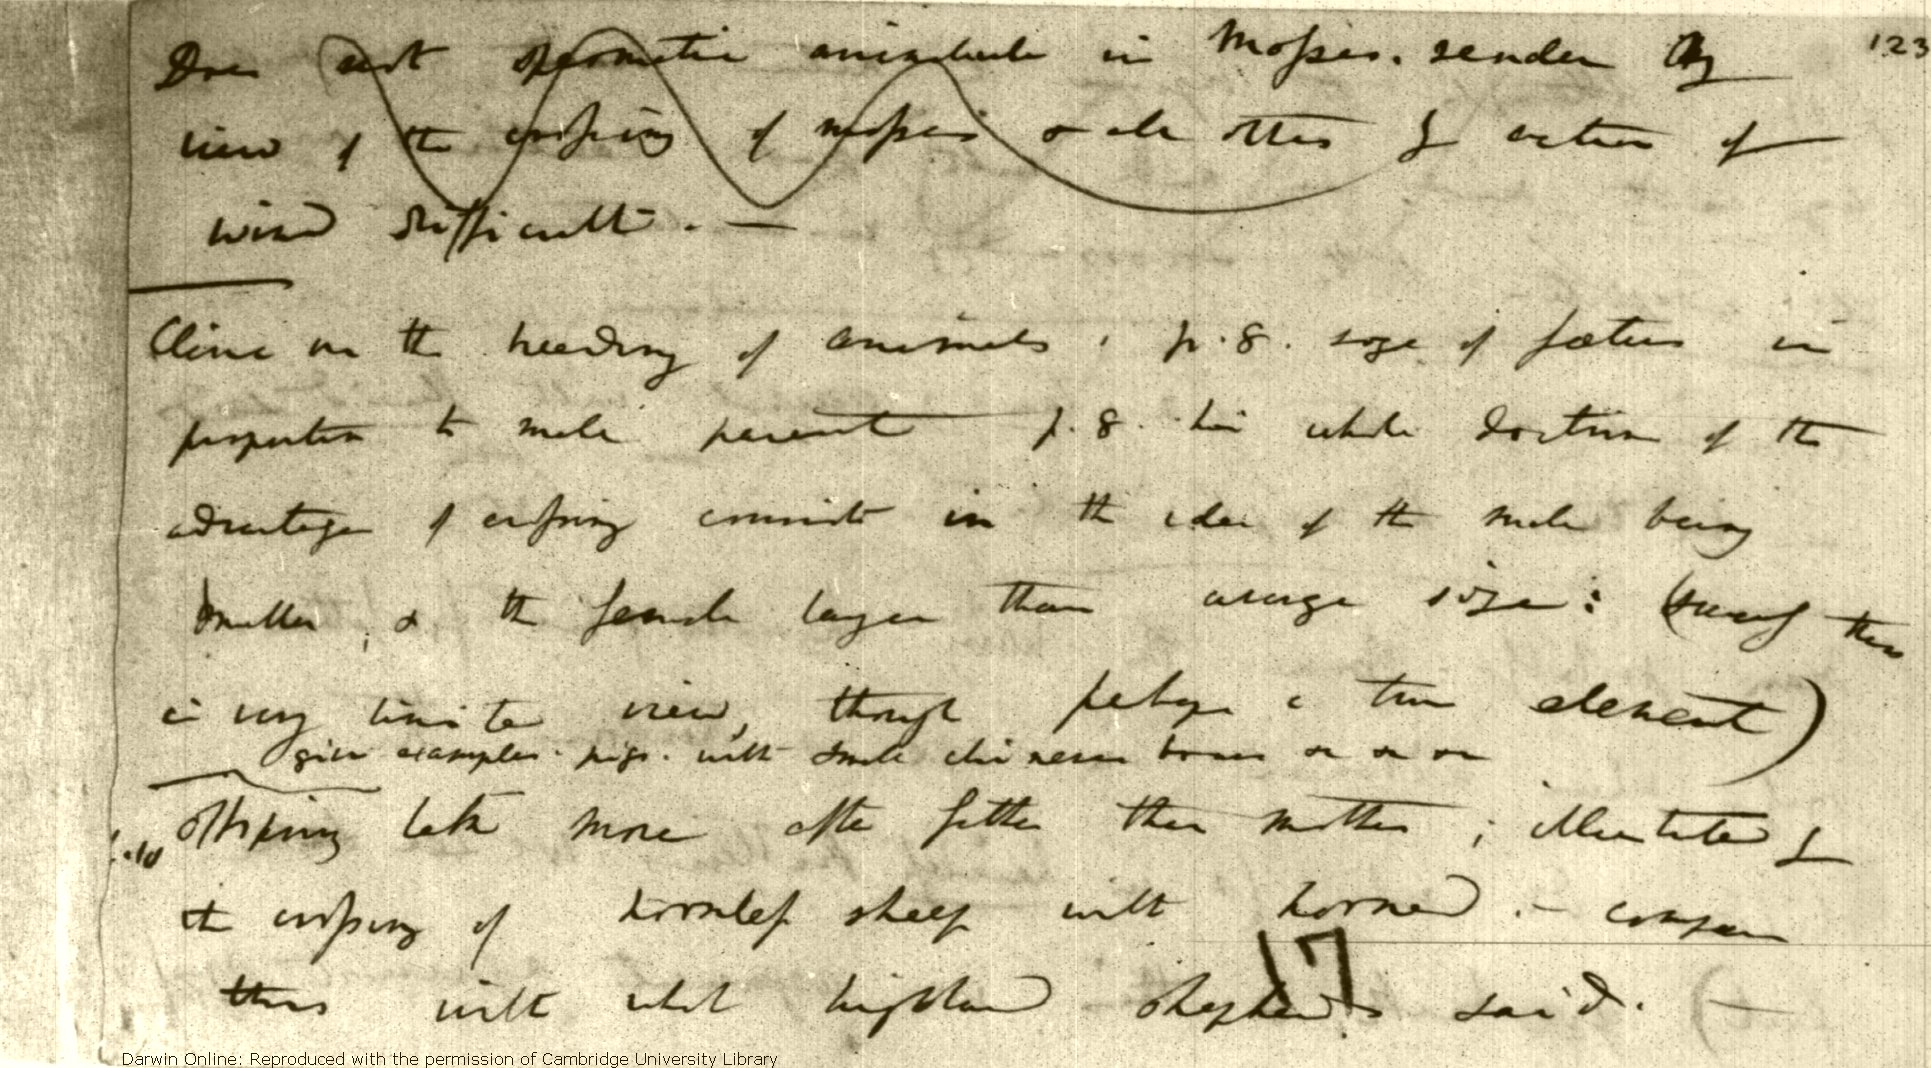 123
Does not spermatic animalcule in Mosses. render my
view of the crossing of mosses & all other by action of
wind difficult. —
Cline on the breeding of animals, p. 8. size of fœtus in
proportion to male parent p. 8. his whole doctrine of the
advantage of crossing consists in the idea of the male being
smaller, & the female larger than average size: (surely this
is very limited view, though perhaps a true element)
give examples. pigs. with small chinese boars &c &c &c
p.10 offspring take more after father than mother; illustrated by
the crossing of hornless sheep with horned. — compare
this with what highland shepherds said. —
17
Darwin Online: Reproduced with the permission of Cambridge University Library